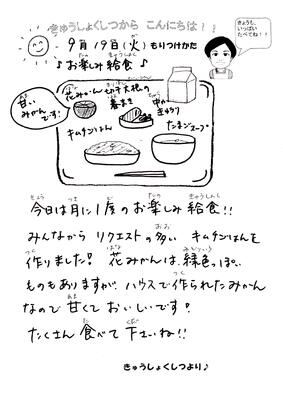 きゅうしょくしつから こんにちは！！
きょうも、
いっぱい
たべてね！！
9月19日(火) もりつけかた
♪お楽しみ給食♪
甘い
みかんです！
花みかん
切干大根の
春まき
中か
きゅうり
キムチごはん
たまごスープ
今日は月に1度のお楽しみ給食!!
みんなから リクエストの多い キムチごはんを
作りました！ 花みかんは、緑色っぽい
ものもありますが、ハウスで作られたみかん
なので 甘くて おいしいです！
たくさん 食べて 下さいね!!
きゅうしょくしつより♪